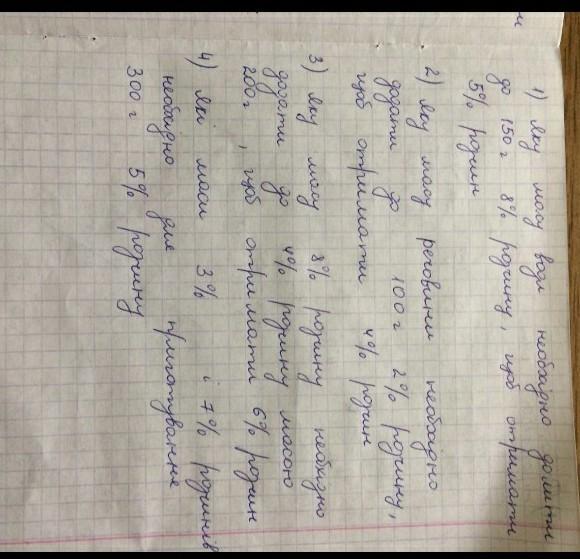 1) Яку масу води необхідно долити
до 150 г 8% розчину, щоб отримати
5% розчин
2) Яку масу речовини необхідно
додати до 100 г 2% розчину,
щоб отримати 4% розчин
3) Яку масу 8% розчину необхідно
додати до 4% розчину масою
200 г, щоб отримати 6% розчин
4) Які маси 3% і 7% розчинів
необхідно для приготування
300 г 5% розчину